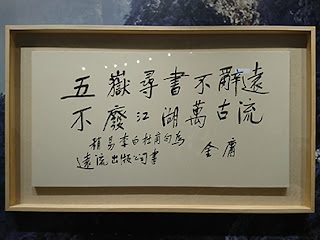 五嶽尋書不辭遠
不廢江湖萬古流
稍易李白杜甫句為
遠流出版公司書
金庸